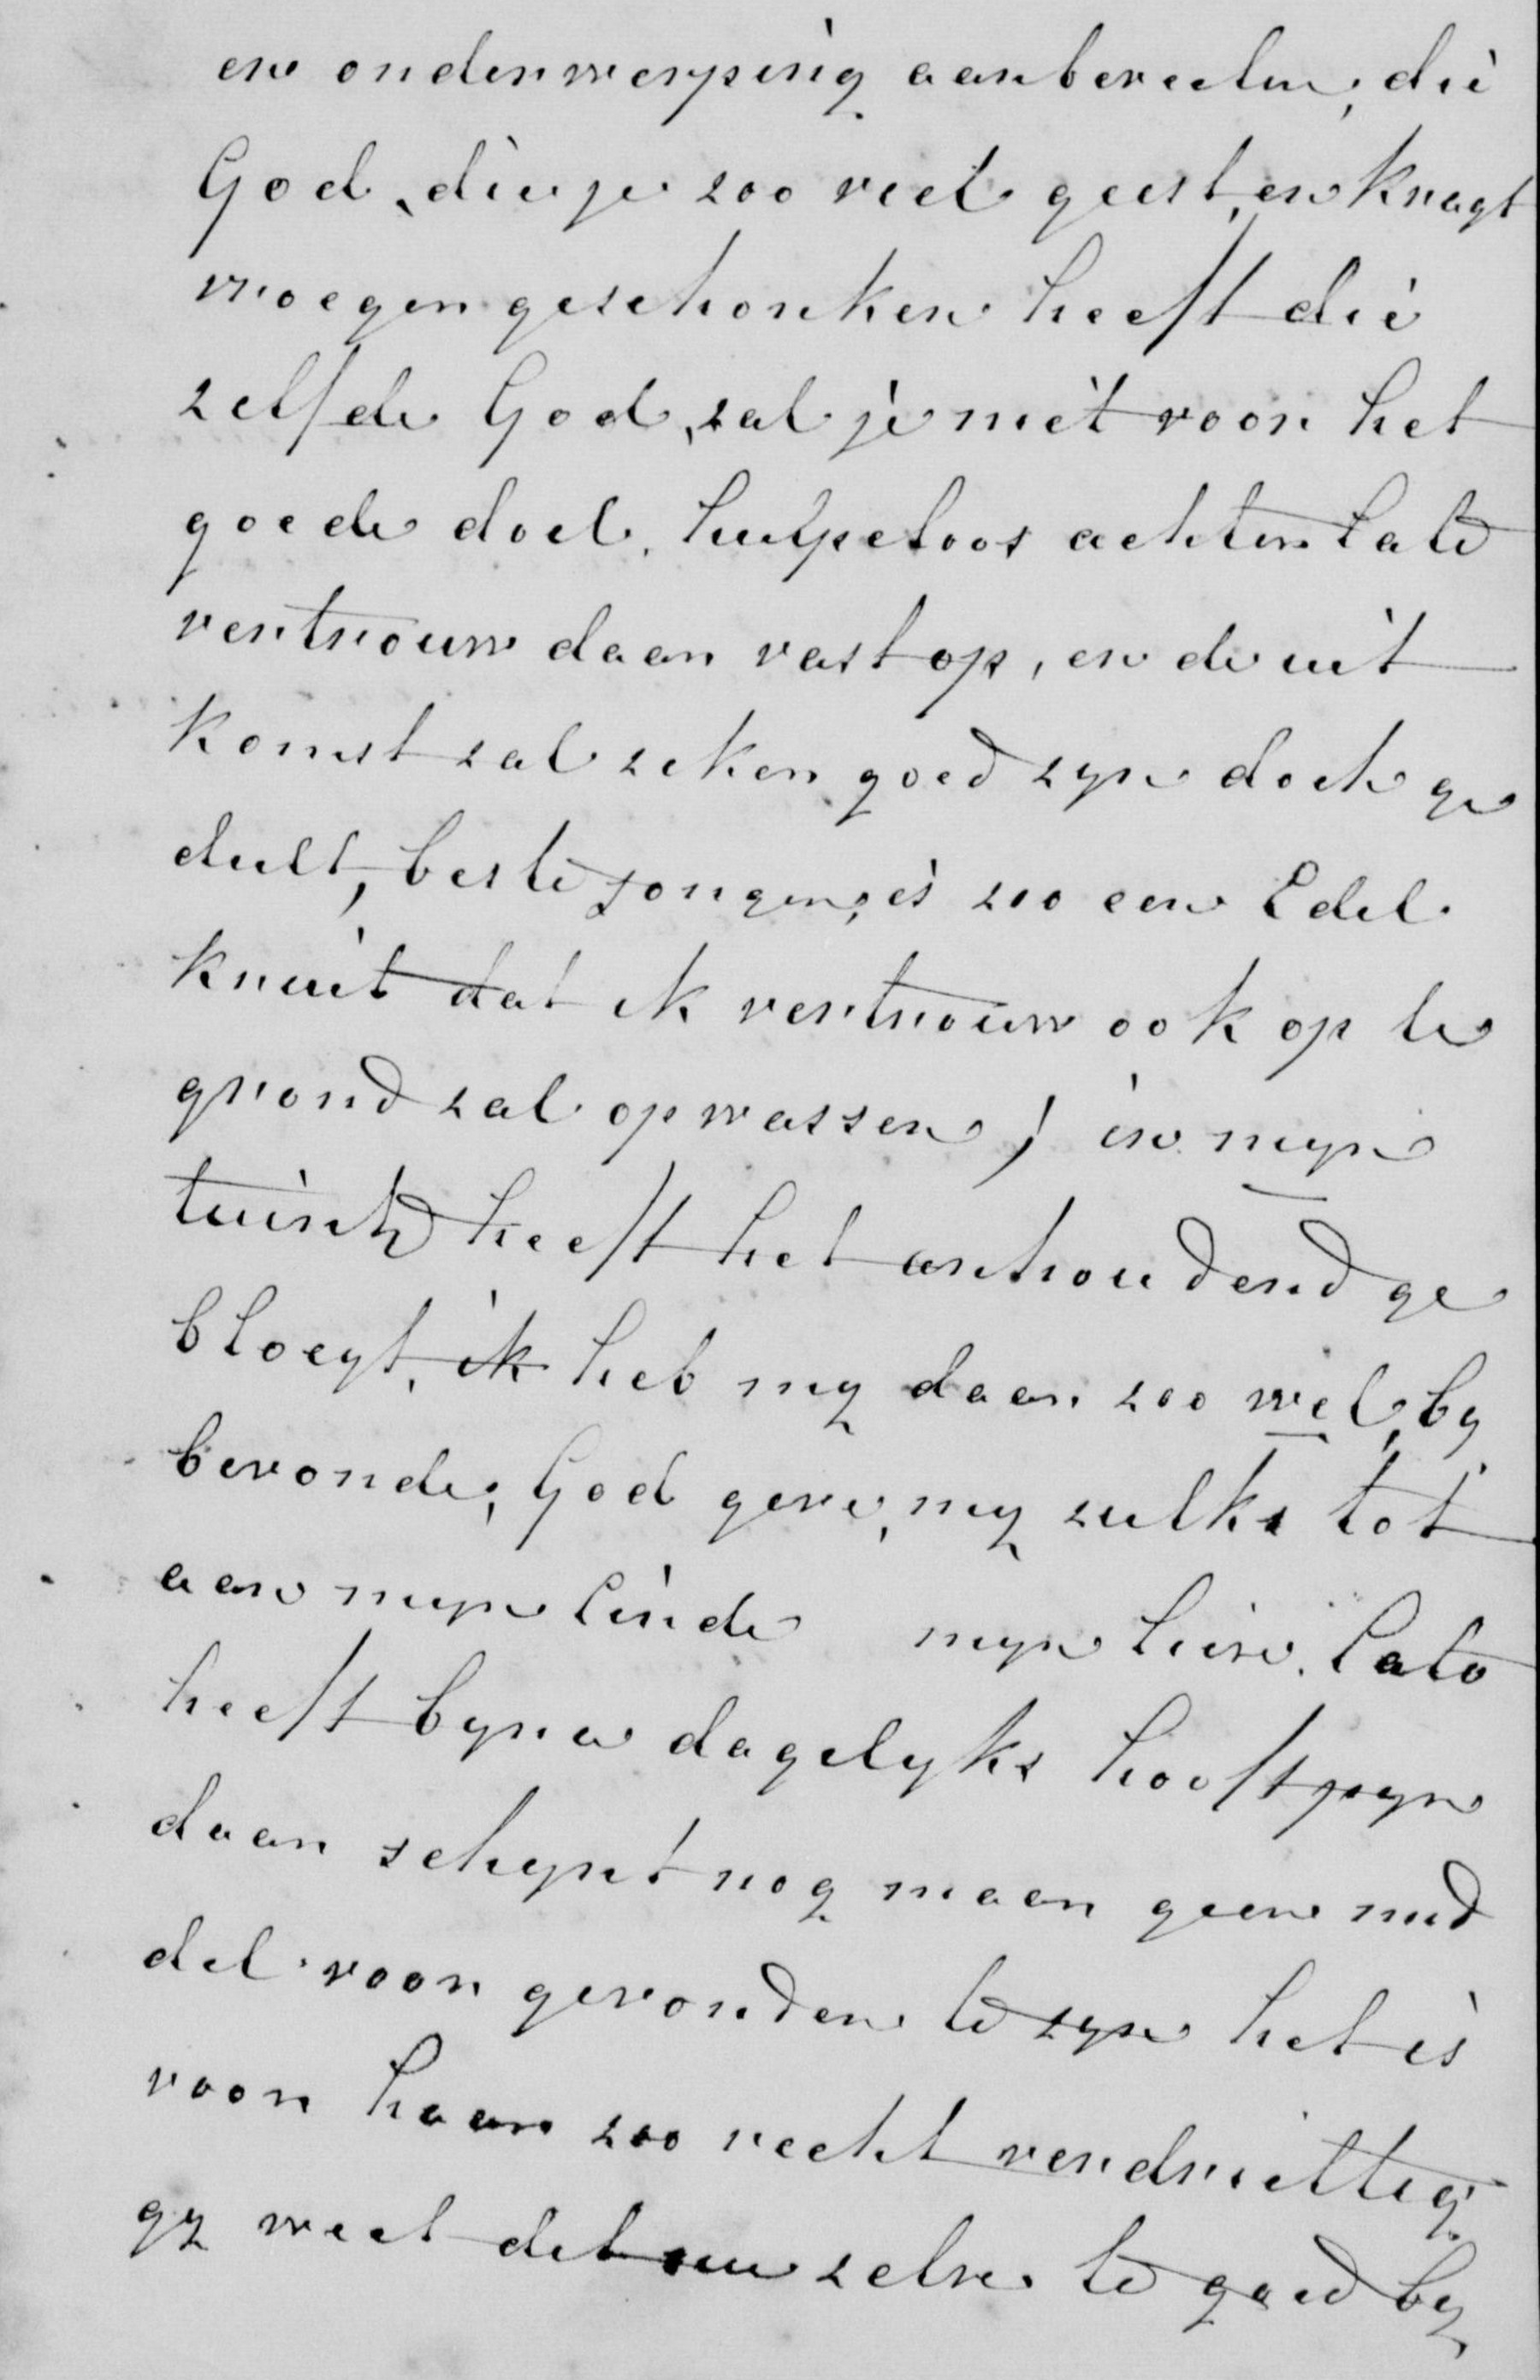 en onderwerping aanbeveelen, die
God, die je zoo veel geest en kragt
vroeger geschonken heeft die
zelfde God, zal je niet voor het
goede doel, hulpeloos achter late
vertrouw daar vast op, en de uit
komst zal zeker goed zyn doch ge
dult, beste jongen, is zoo een Edel
kruit dat ik vertrouw ook op te
grond zal opwassen, in myn
tuintje heeft het anhoudend ge
bloeyt, ik heb my daar zoo wel by
bevonde, God geve, my zulks tot
aan myn Einde myn lieve Cato
heeft byna dagelyks hooftpyn
daar schynt nog maar geen mid
del voor gevonden te zyn het is
voor haar zoo recht verdrietteg
gy weet det uw zelve te goed by